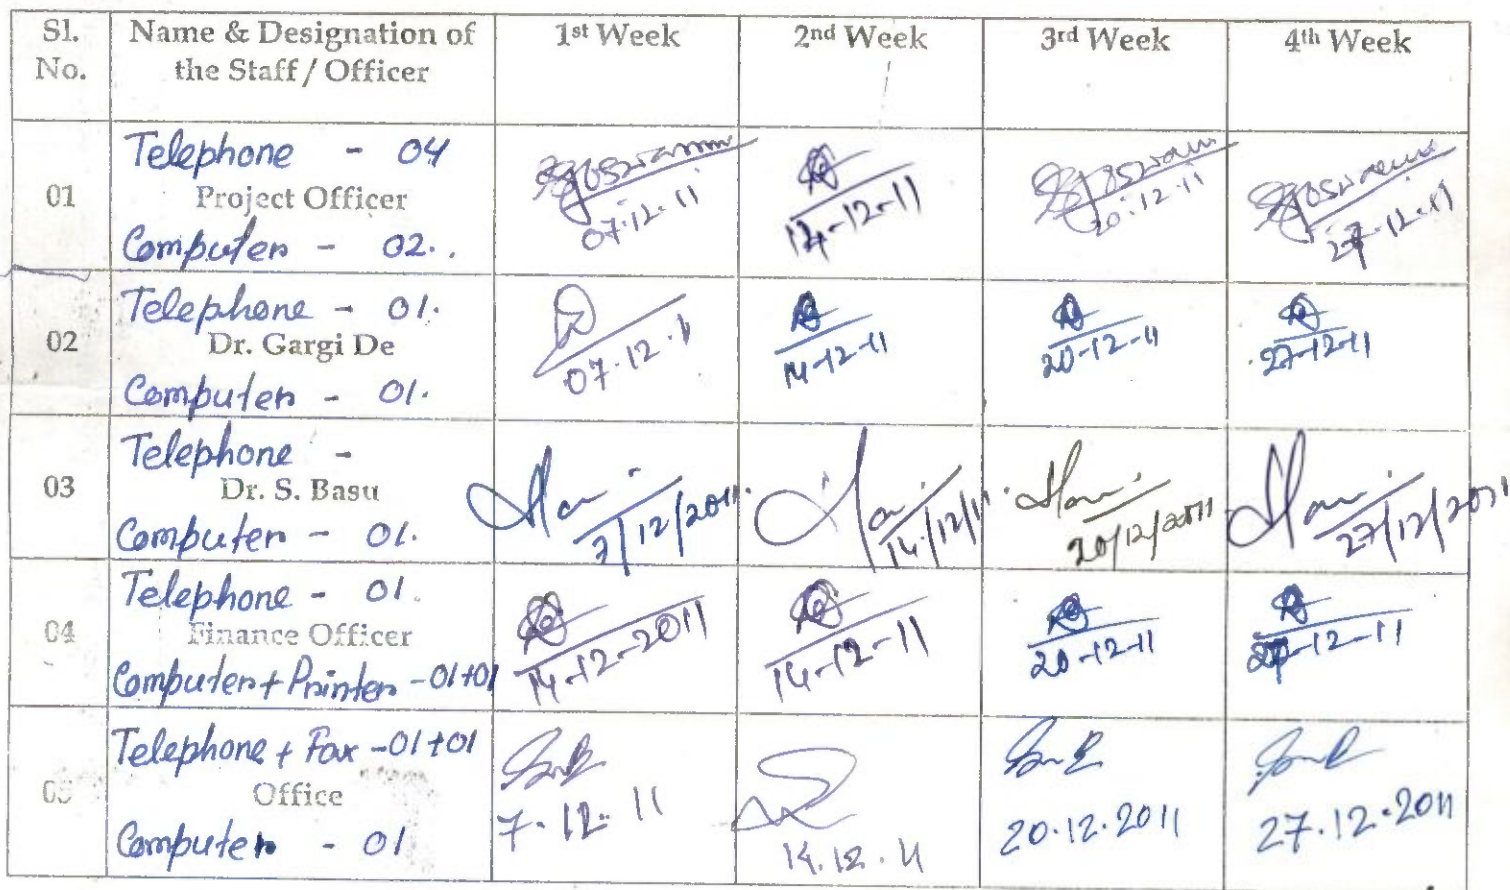 Sl. No. Name & Designation of the Staff / Officer 1st Week 2nd Week 3rd Week 4th Week
Telephone - 04
01 Project Officer
Computer - 02.
07.12.11 14-12-11 20.12.11 27.12.11
Telephone - 01.
02 Dr. Gargi De
Computer - 01.
07.12.11 14-12-11 20-12-11 27-12-11
Telephone -
03 Dr. S. Basu
Computer - 01.
7/12/2011 14/12/11 20/12/2011 27/12/2011
Telephone - 01.
04 Finance Officer
Computer + Printer - 01+01
14-12-2011 14-12-11 20-12-11 27-12-11
Telephone + Fax - 01+01
05 Office
Computer - 01
7.12.11 14.12.11 20.12.2011 27.12.2011